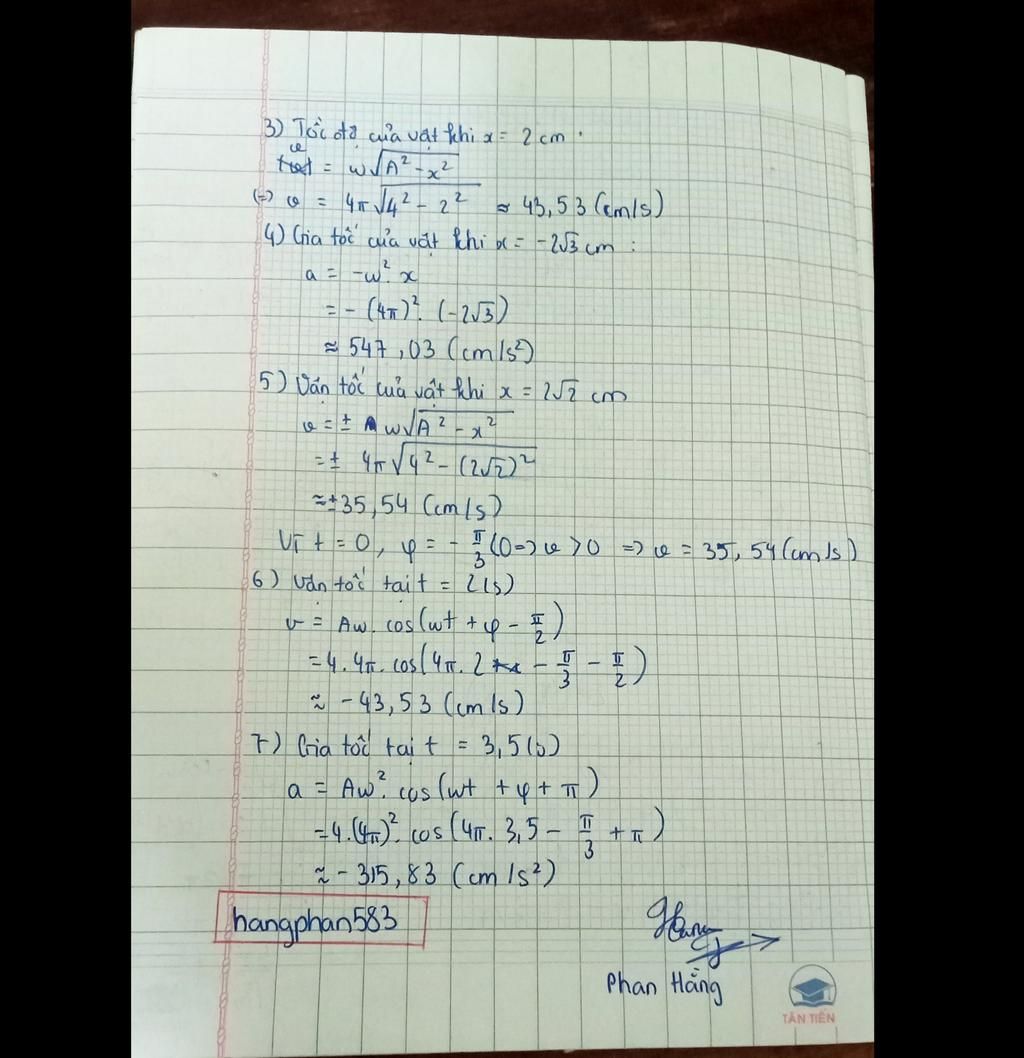 3) Tốc độ của vật khi x = 2 cm.
v = ω√(A² - x²)
(=) v = 4π√(4² - 2²) ≈ 43,53 (cm/s)
4) Gia tốc của vật khi x = -2√3 cm :
a = -ω². x
= - (4π)². (-2√3)
≈ 547,03 (cm/s²)
5) Vận tốc của vật khi x = 2√2 cm
v = ± ω√(A² - x²)
= ± 4π√(4² - (2√2)²)
≈ ±35,54 (cm/s)
Vì t = 0, φ = - π/3 < 0 => v > 0 => v = 35,54 (cm/s)
6) Vận tốc tại t = 2(s)
v = Aω. cos(ωt + φ - π/2)
= 4. 4π. cos(4π. 2 - π/3 - π/2)
≈ - 43,53 (cm/s)
7) Gia tốc tại t = 3,5(s)
a = Aω². cos(ωt + φ + π)
= 4.(4π)². cos(4π. 3,5 - π/3 + π)
≈ - 315,83 (cm/s²)
hangphan583
Hang
Phan Hằng
TÂN TIẾN